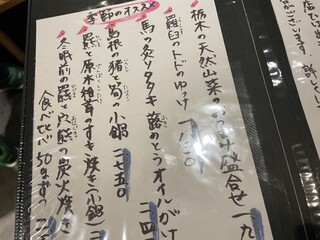 季節のオススメ
栃木の天然山菜のおつまみ盛合せ 一九
羅臼のトドのゆっけ 一八三〇
馬の炙りタタキ 蕗のとうオイルがけ 二四
島根の猪と筍の小鍋 二七五〇
熊と原木椎茸のすき焼き(小鍋) 二
冬眠前の羆と穴熊の炭火焼き
食べ比べ50gずつ 二